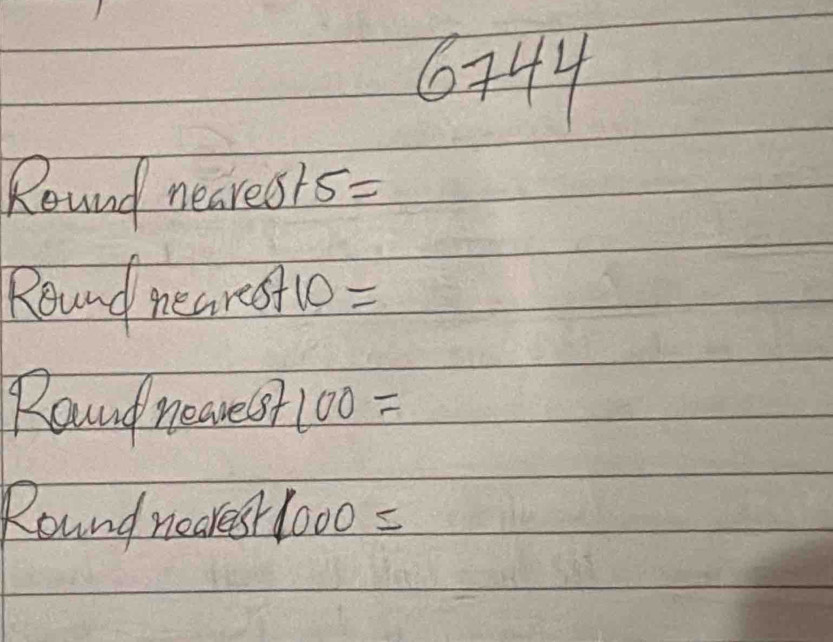 6744
Round nearest 5 =
Round nearest 10 =
Round nearest 100 =
Round nearest 1000 =